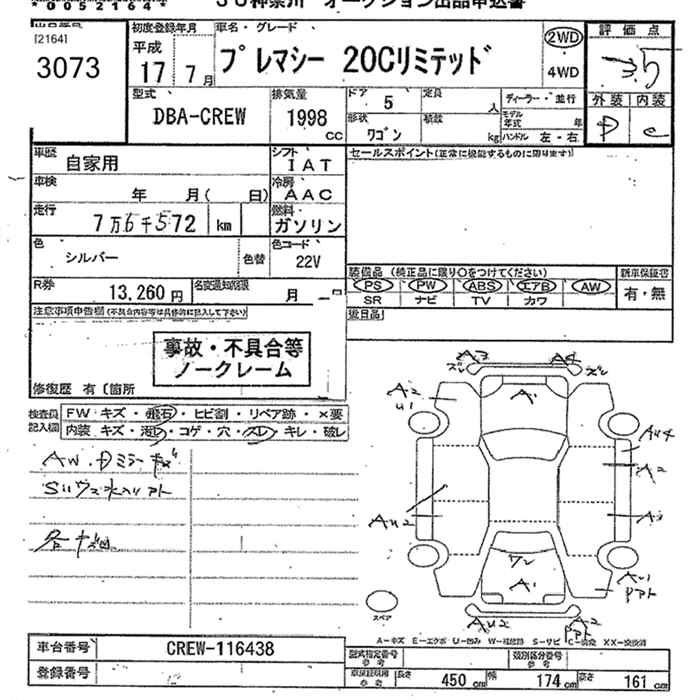 JU神奈川 オークション出品申込書
*00521641*
[2164]
3073
初度登録年月
平成
17 7月
車名・グレード
プレマシー 20Cリミテッド
2WD
4WD
評価点
3.5
外装 内装
D C
型式
DBA-CREW
排気量
1998 cc
ドア 5
定員 人
形状
ワゴン
積載 kg
ディーラー・並行
モデル年式 年
ハンドル 左・右
車歴
自家用
シフト
IAT
車検
年 月( 日)
冷房
AAC
走行
7万6千572 km
燃料
ガソリン
色
シルバー
色替
色コード
22V
R券
13,260円
名変通知期限
月 日
セールスポイント(正常に機能するものに限ります)
装備品 (純正品に限り○をつけてください)
PS PW ABS エアB AW
SR ナビ TV カワ
新車保証書
有・無
後日品
注意事項申告欄(不具合内容等は具体的に記入して下さい)
事故・不具合等
ノークレーム
修復歴 有〔箇所
検査員
記入欄
FW キズ・飛石・ヒビ割・リペア跡・×要
内装 キズ・汚レ・コゲ・穴・スレ・キレ・破レ
AW.Dミラーキズ
A3 A4
A2
U1
A1
AU4
A2
A3
AU2
ワレ
A1
AU1
PPト
AU2 A2
PPト
スペア
A-キズ E-エクボ U-凹み W-補修跡 S-サビ C-腐食 XX-交換済
車台番号
CREW-116438
登録番号
型式指定番号
参考
類別区分番号
参考
車検証明用
参考
長さ 450 cm 幅 174 cm 高さ 161 cm